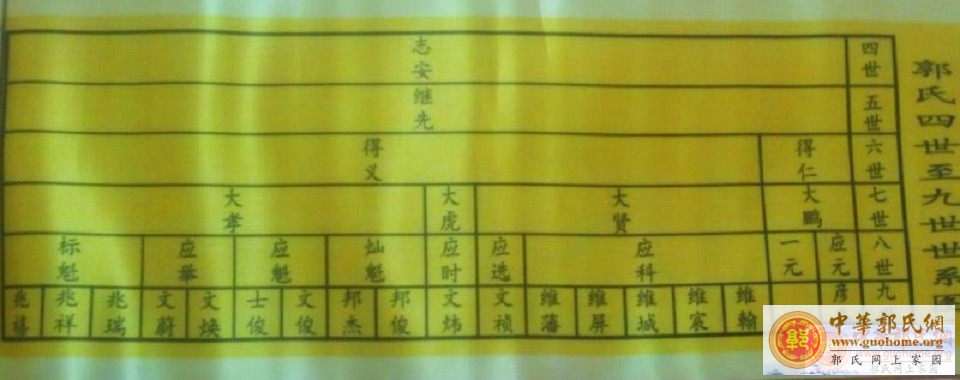 郭氏四世至九世世系图
四世 志安
五世 继先
六世 得仁 得义
七世 大鹏 大贤 大虎 大孝
八世 应元 一元 应科 应选 应时 灿魁 应魁 应举 标魁
九 彦 维翰 维宸 维城 维屏 维藩 文祯 文炜 邦俊 邦杰 文俊 士俊 文焕 文蔚 兆瑞 兆祥 兆
中華郭氏網
www.guohome.org
郭氏网上家园
郭氏网上家园